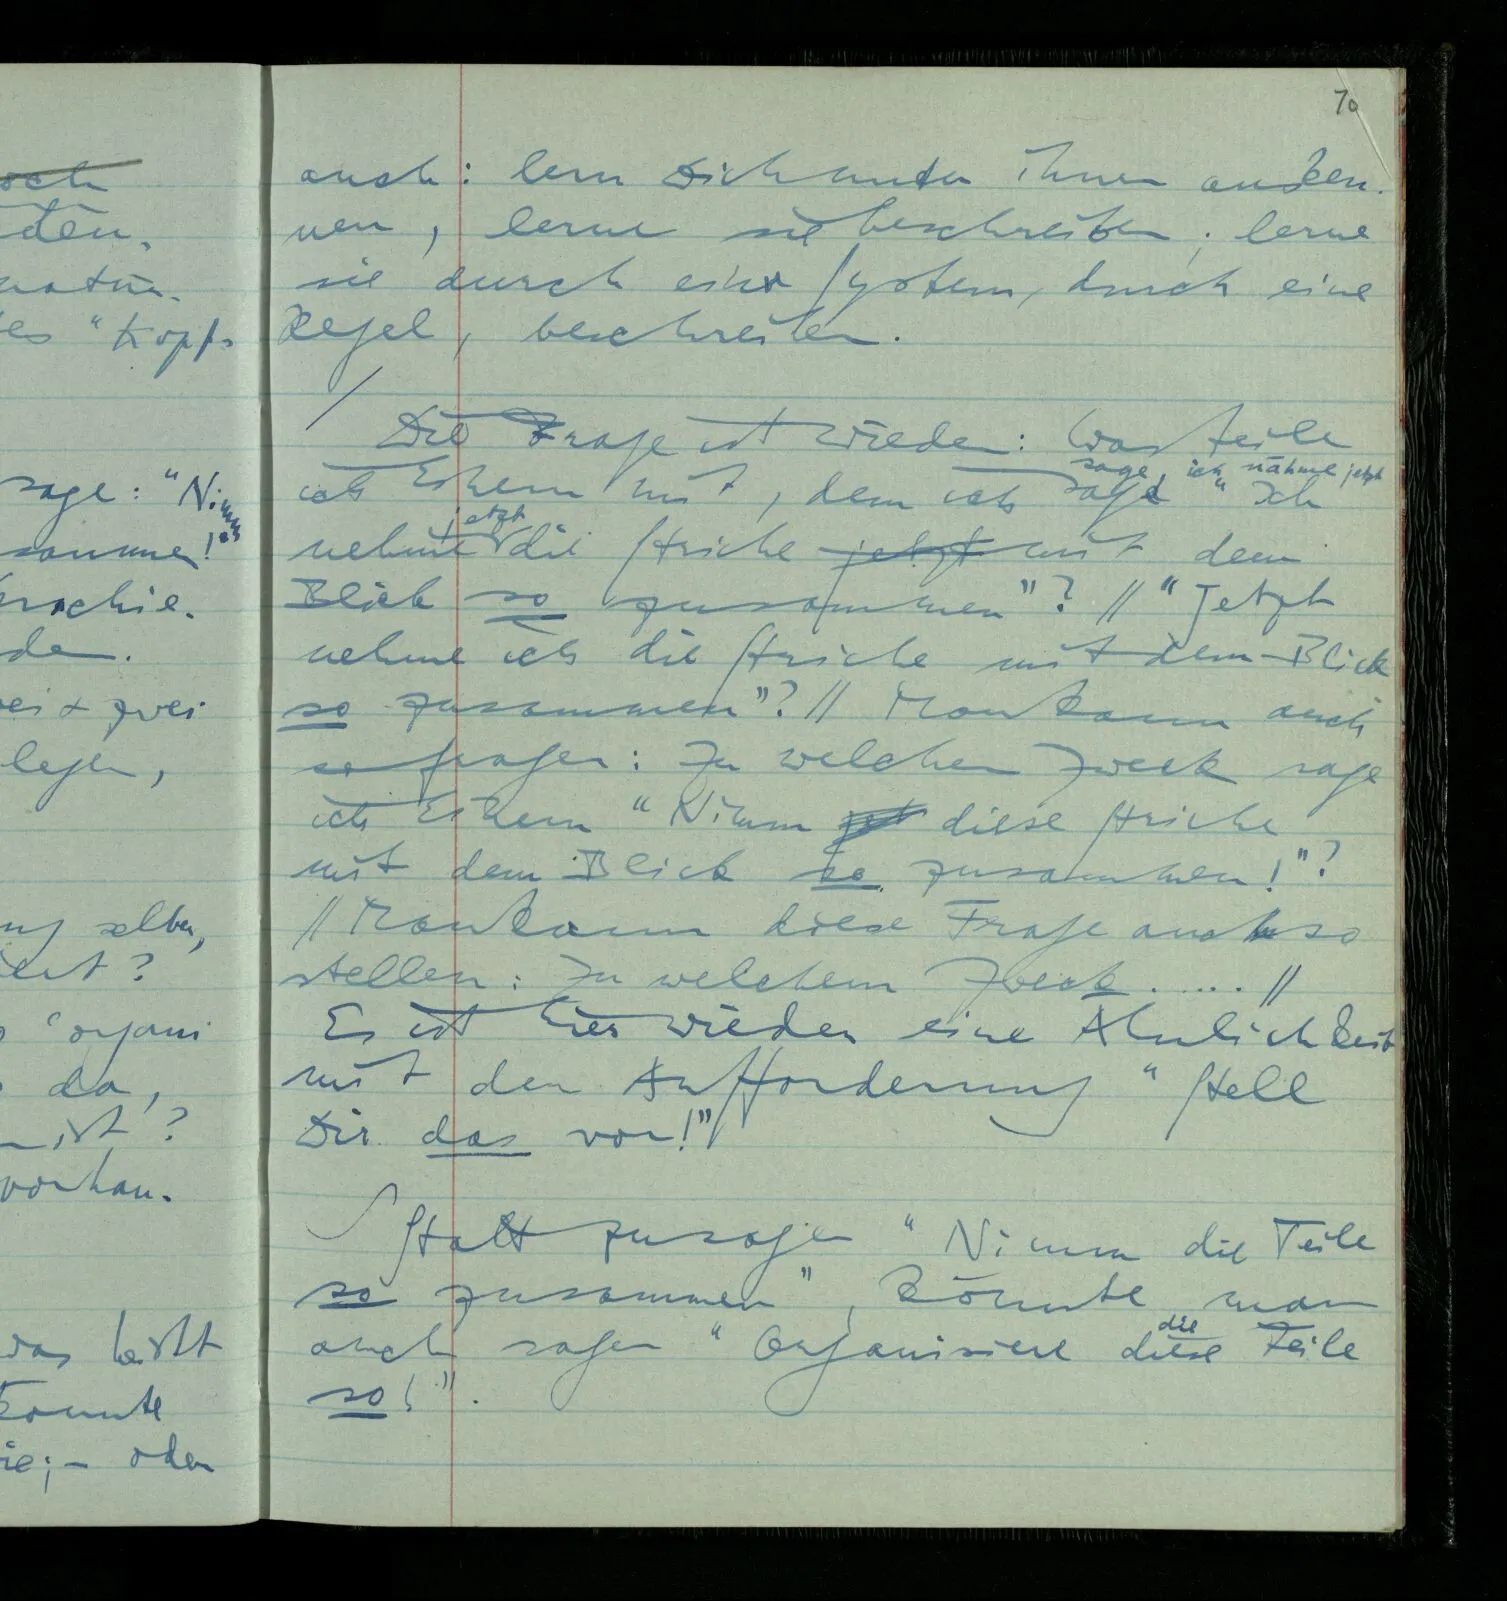 70
auch: lern Dich unter ihnen ausken-
nen, lerne sie beschreiben; lerne
sie durch ein System, durch eine
Regel, beschreiben.
/
Die Frage ist wieder: Was teile
sage, ich nähme jetzt
ich Einem mit, dem ich sage " Ich
jetzt
nehme die Striche jetzt mit dem
Blick so zusammen"? // "Jetzt
nehme ich die Striche mit dem Blick
so zusammen"? // Man kann auch
so fragen: Zu welchen Zweck sage
ich Einem "Nimm diese Striche
mit dem Blick so zusammen!"?
// Man kann diese Frage auch so
stellen: Zu welchem Zweck..... //
Es ist hier wieder eine Ähnlichkeit
mit der Aufforderung "Stell
Dir das vor!"
Statt zu sagen "Nimm die Teile
so zusammen", könnte man
die
auch sagen "Organisiere diese Teile
so!".
och
den.
natür-
es "Kopf-
sage: "Nimm
sammen!"
erschie-
de
ei + zwei
legen,
ng selber,
iert?
"organi
da,
ist?
vorhan-
was heißt
konnte
ie; – oder